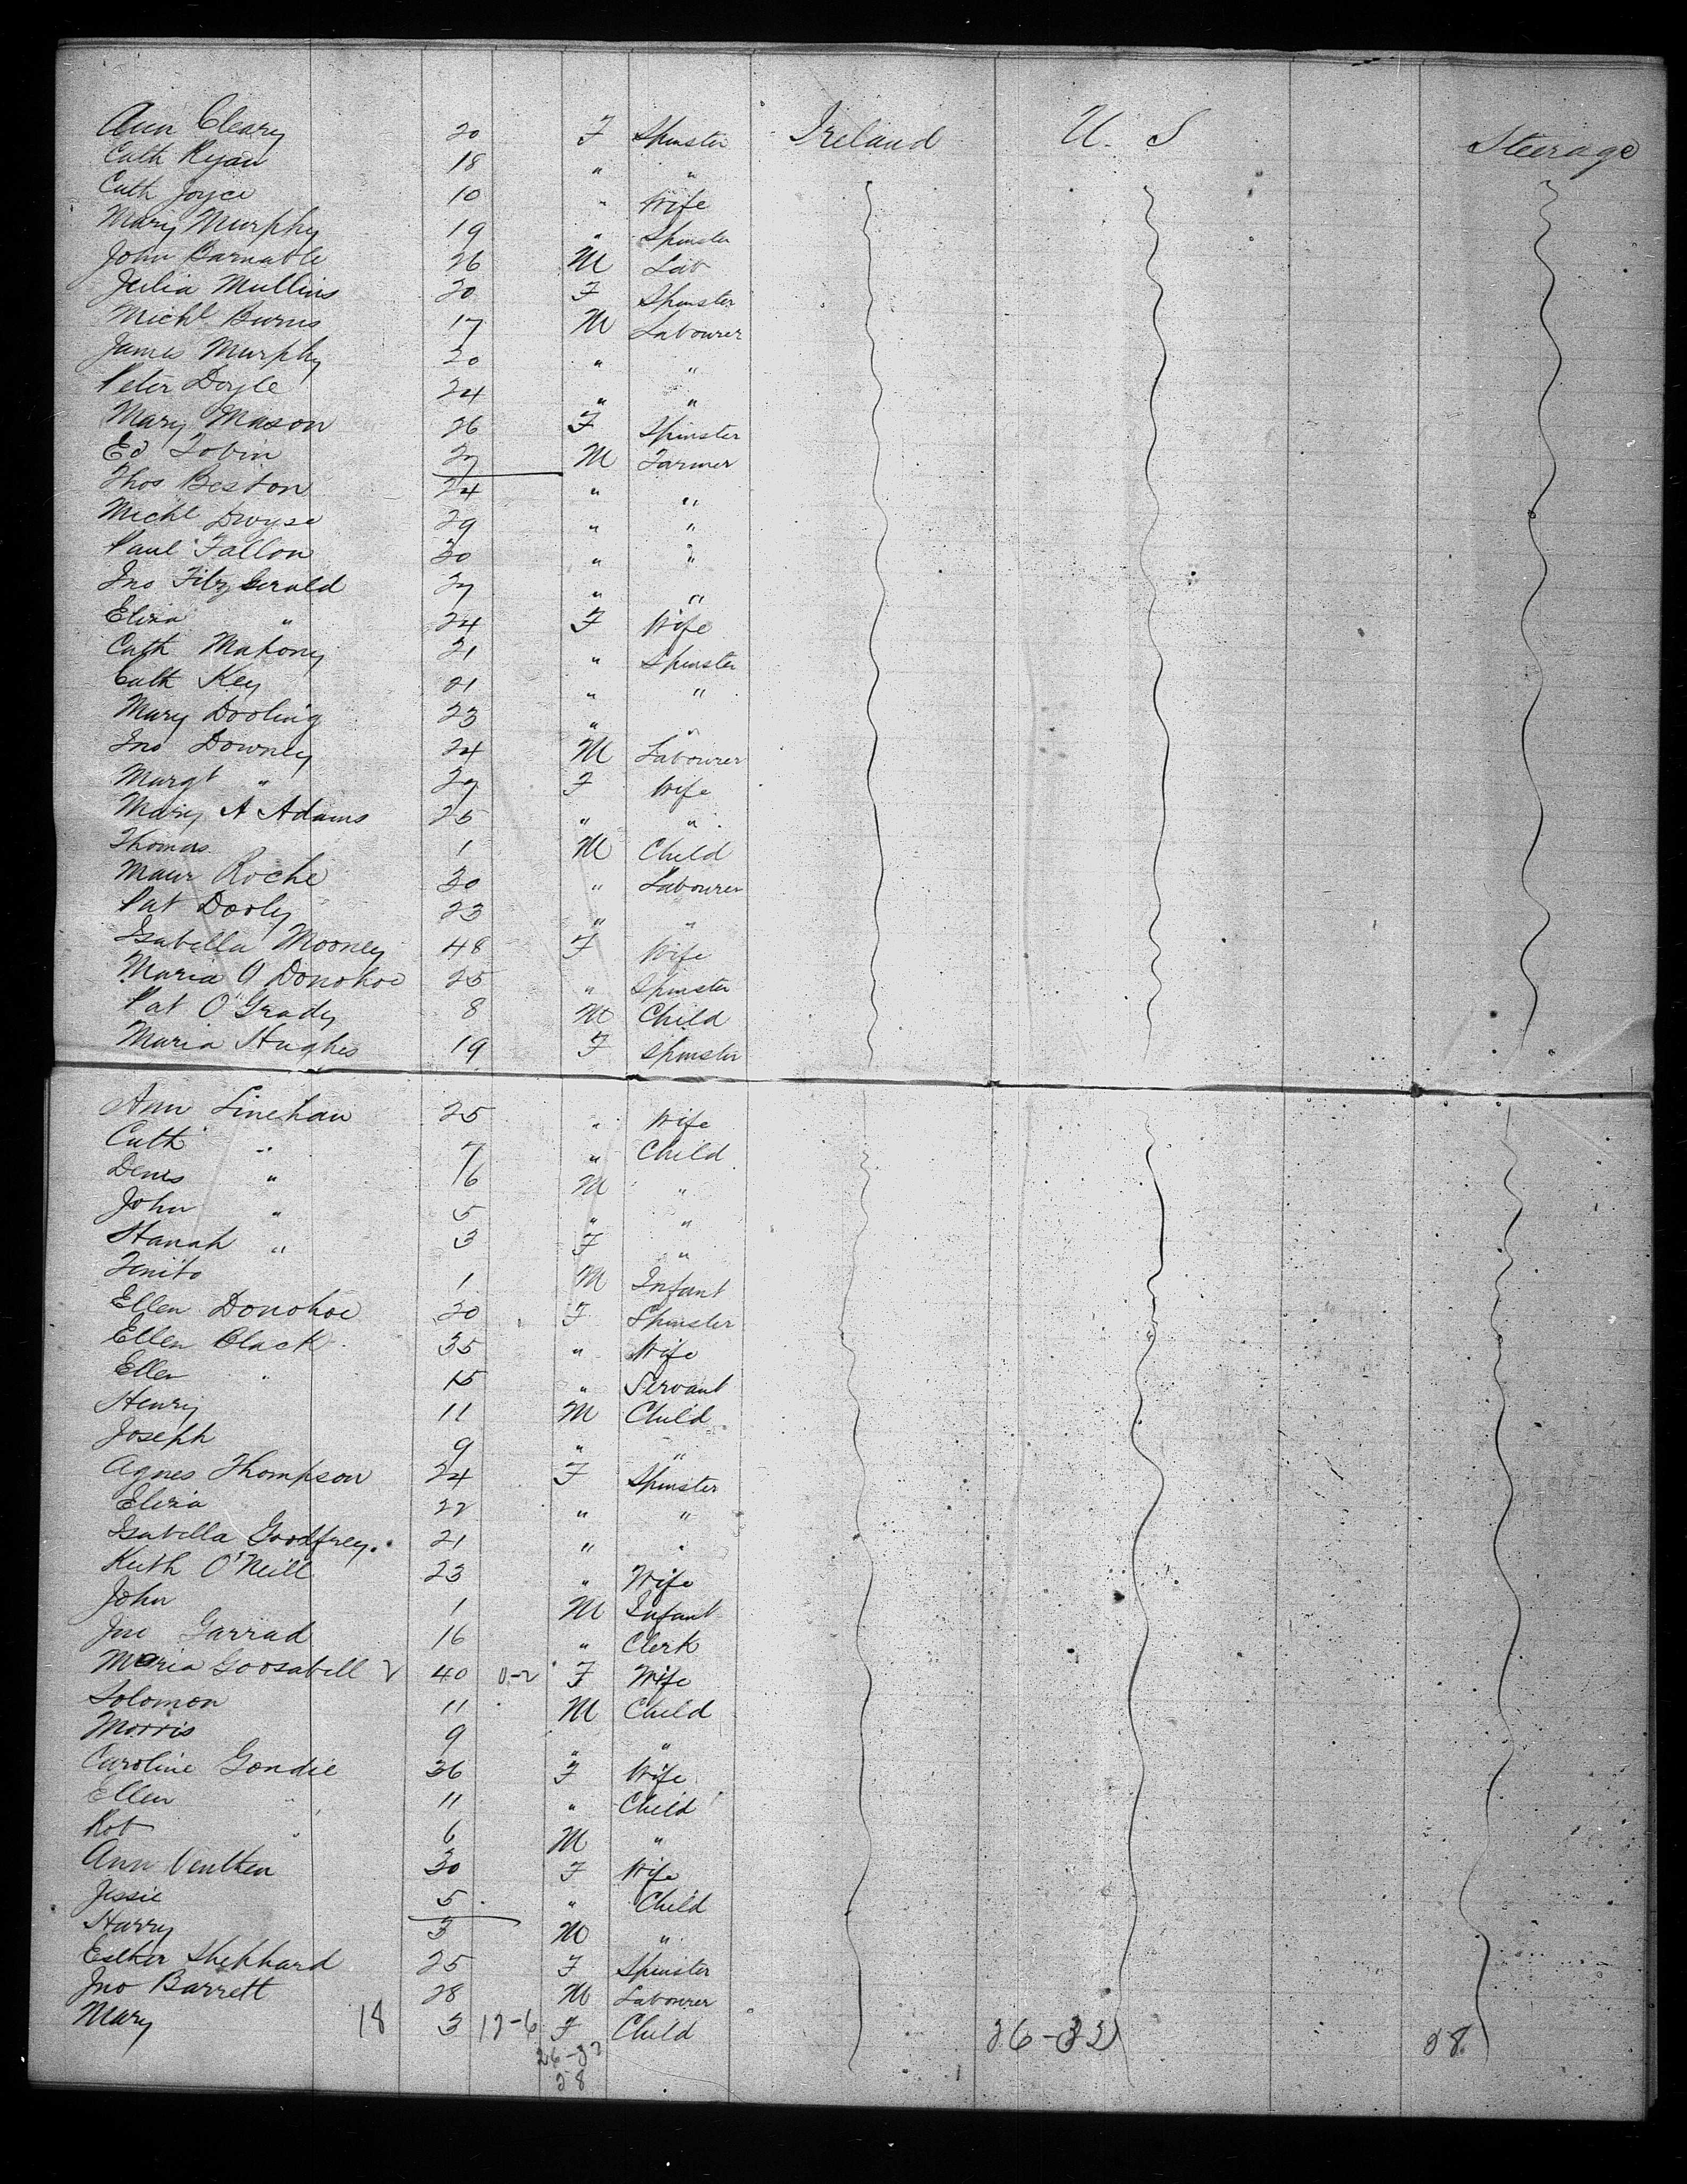 Ann Cleary 20 F Spinster Ireland U. S Steerage
Cath Ryan 18 " "
Cath Joyce 10 " Wife
Mary Murphy 19 " Spinster
John Barnable 26 M Lab
Julia Mullins 20 F Spinster
Michl Burns 17 M Labourer
James Murphy 20 " "
Peter Doyle 24 " "
Mary Mason 26 F Spinster
Ed Tobin 27 M Farmer
Thos Beston 24 " "
Michl Dwyse 29 " "
Paul Fallon 30 " "
Jno Fitzgerald 27 " "
Eliza " 24 F Wife
Cath Mahony 21 " Spinster
Cath Key 21 " "
Mary Dooling 23 " "
Jno Downey 24 M Labourer
Margt " 27 F Wife
Mary A Adams 25 " "
Thomas 1 M Child
Maur Roche 30 " Labourer
Pat Dooly 23 " "
Isabella Mooney 48 F Wife
Maria O Donohoe 25 " Spinster
Pat O'Grady 8 M Child
Maria Hughes 19 F Spinster
Ann Linehan 25 " Wife
Cath " 7 " Child
Denis " 6 M "
John " 5 " "
Hanah " 3 F "
1 M Infant
Ellen Donohoe 20 F Spinster
Ellen Black 35 " Wife
Ellen " 15 " Servant
Henry 11 M Child
Joseph 9 " "
Agnes Thompson 24 F Spinster
Eliza 22 " "
Isabella Goodfrey 21 " "
Kath O'Neill 23 " Wife
John 1 M Infant
Jno Garrad 16 " Clerk
Maria Goosabell 40 0-2 F Wife
Solomon 11 M Child
Morris 9 " "
Caroline Gondie 36 F Wife
Ellen " 11 " Child
Rob " 6 M "
Ann Venthen 30 F Wife
Jessie 5 " Child
Harry 3 M "
Esther Shephard 25 F Spinster
Jno Barrett 28 M Labourer
Mary 18 3 12-6 F Child 26-32 58
26-32
58